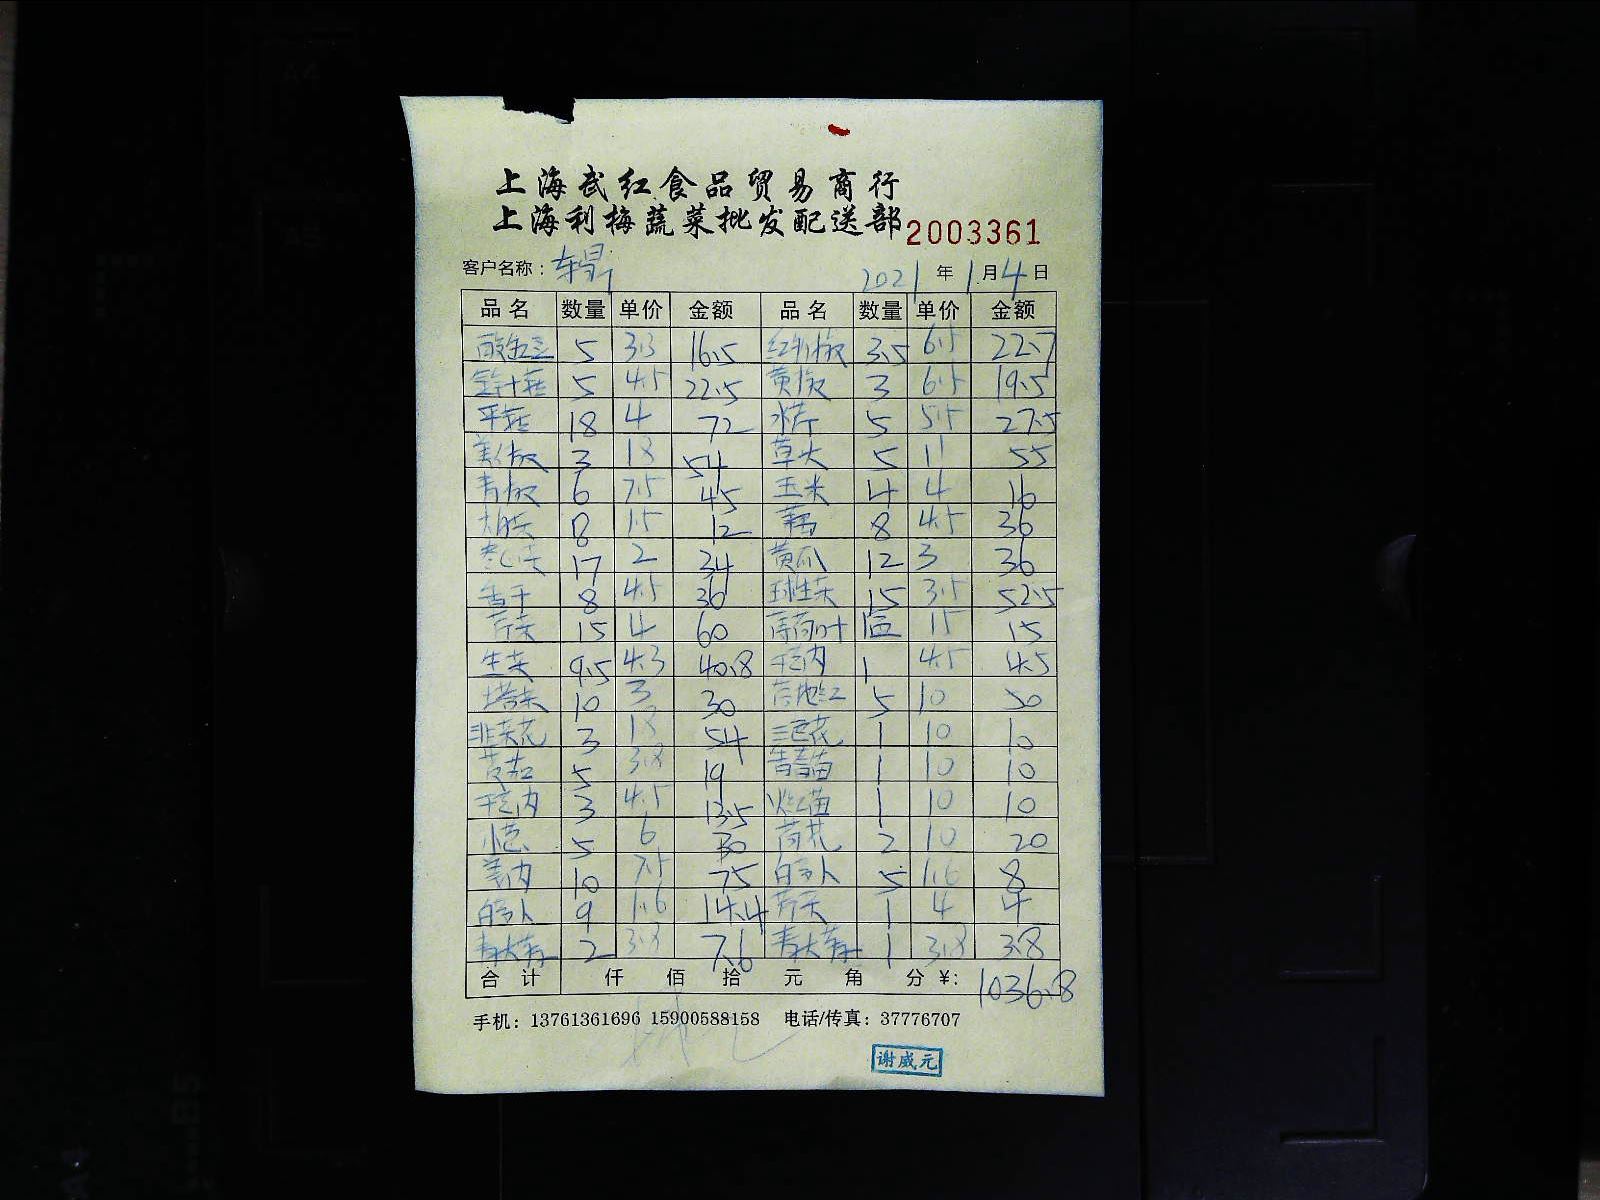 上海武红食品贸易商行
上海利梅蔬菜批发配送部 2003361
客户名称： 2021年1月4日
品名 数量 单价 金额 品名 数量 单价 金额
5 3.3 16.5 3.5 6.5 22.7
金针菇 5 4.5 22.5 黄椒 3 6.5 19.5
平菇 18 4 72 水芹 5 5.5 27.5
美人椒 3 18 54 草头 5 11 55
青椒 6 7.5 45 玉米 4 4 16
8 1.5 12 藕 8 4.5 36
17 2 34 黄瓜 12 3 36
香干 8 4.5 36 球生菜 15 3.5 52.5
芹菜 15 4 60 薄荷叶 1 15 15
生菜 9.5 4.3 40.8 1 4.5 4.5
塔菜 10 3 30 5 10 50
韭菜花 3 18 54 三色花 1 10 10
5 3.8 19 1 10 10
3 4.5 13.5 1 10 10
小芒 5 6 30 2 10 20
10 7.5 75 白萝卜 5 1.6 8
白萝卜 9 1.6 14.4 芹菜 1 4 4
青大蒜 2 3.8 7.6 青大蒜 1 3.8 3.8
合计 仟 佰 拾 元 角 分 ¥: 1036.8
手机：13761361696 15900588158 电话/传真：37776707
谢威元